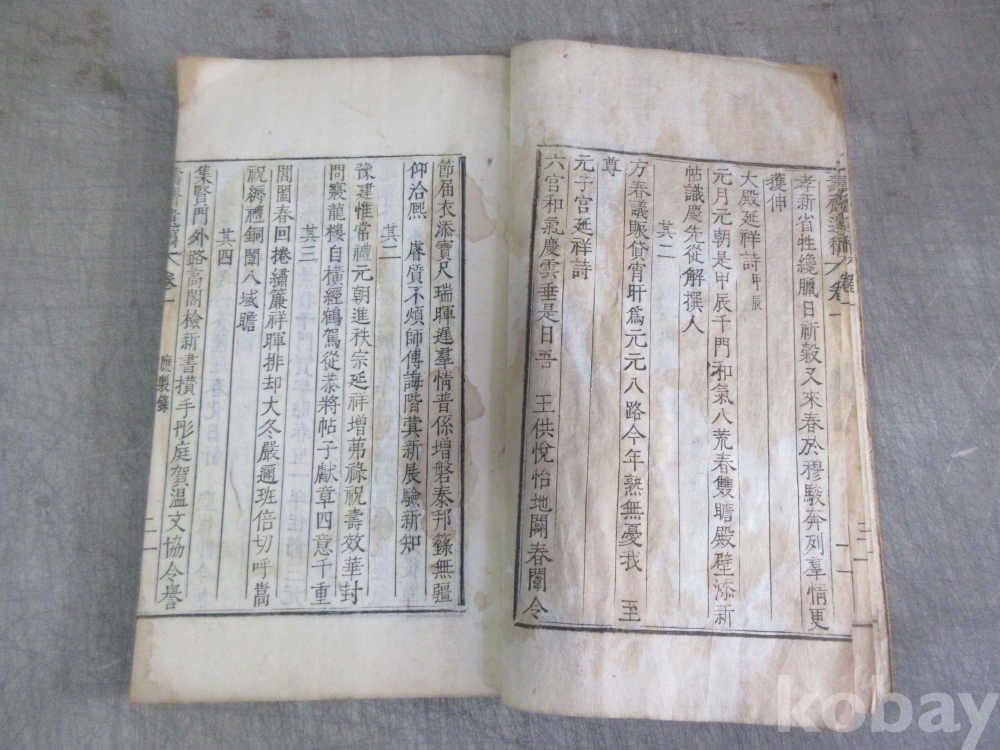 孝新省牲纔臘日祈穀又來春於穆駿奔列羣情更
獲伸
大殿延祥詩甲辰
元月元朝是甲辰千門和氣八荒春雙瞻殿壁添新
帖識慶先從解撰人
其二
方春議賑貸宵旰爲元元八路今年熟無憂我 至
尊
元子宮延祥詩
六宮和氣慶雲垂是日吾 王供悅怡地闢春闈令
節屆衣添寶尺瑞暉遲羣情普係增磐泰邦籙無疆
仰洽熙 睿質不煩師傅誨階蓂新展驗新知
其二
豫建惟常禮元朝進秩宗延祥增茀祿祝壽效華封
問寢龍樓自橫經鶴駕從恭將帖子獻章四意千重
其三
閶闔春回捲繡簾祥暉排却大冬嚴邇班倍切呼嵩
祝縟禮銅闈八域瞻
其四
集賢門外路高閣檢新書攅手彤庭賀溫文協令譽
卷一
應製錄
二
kobay